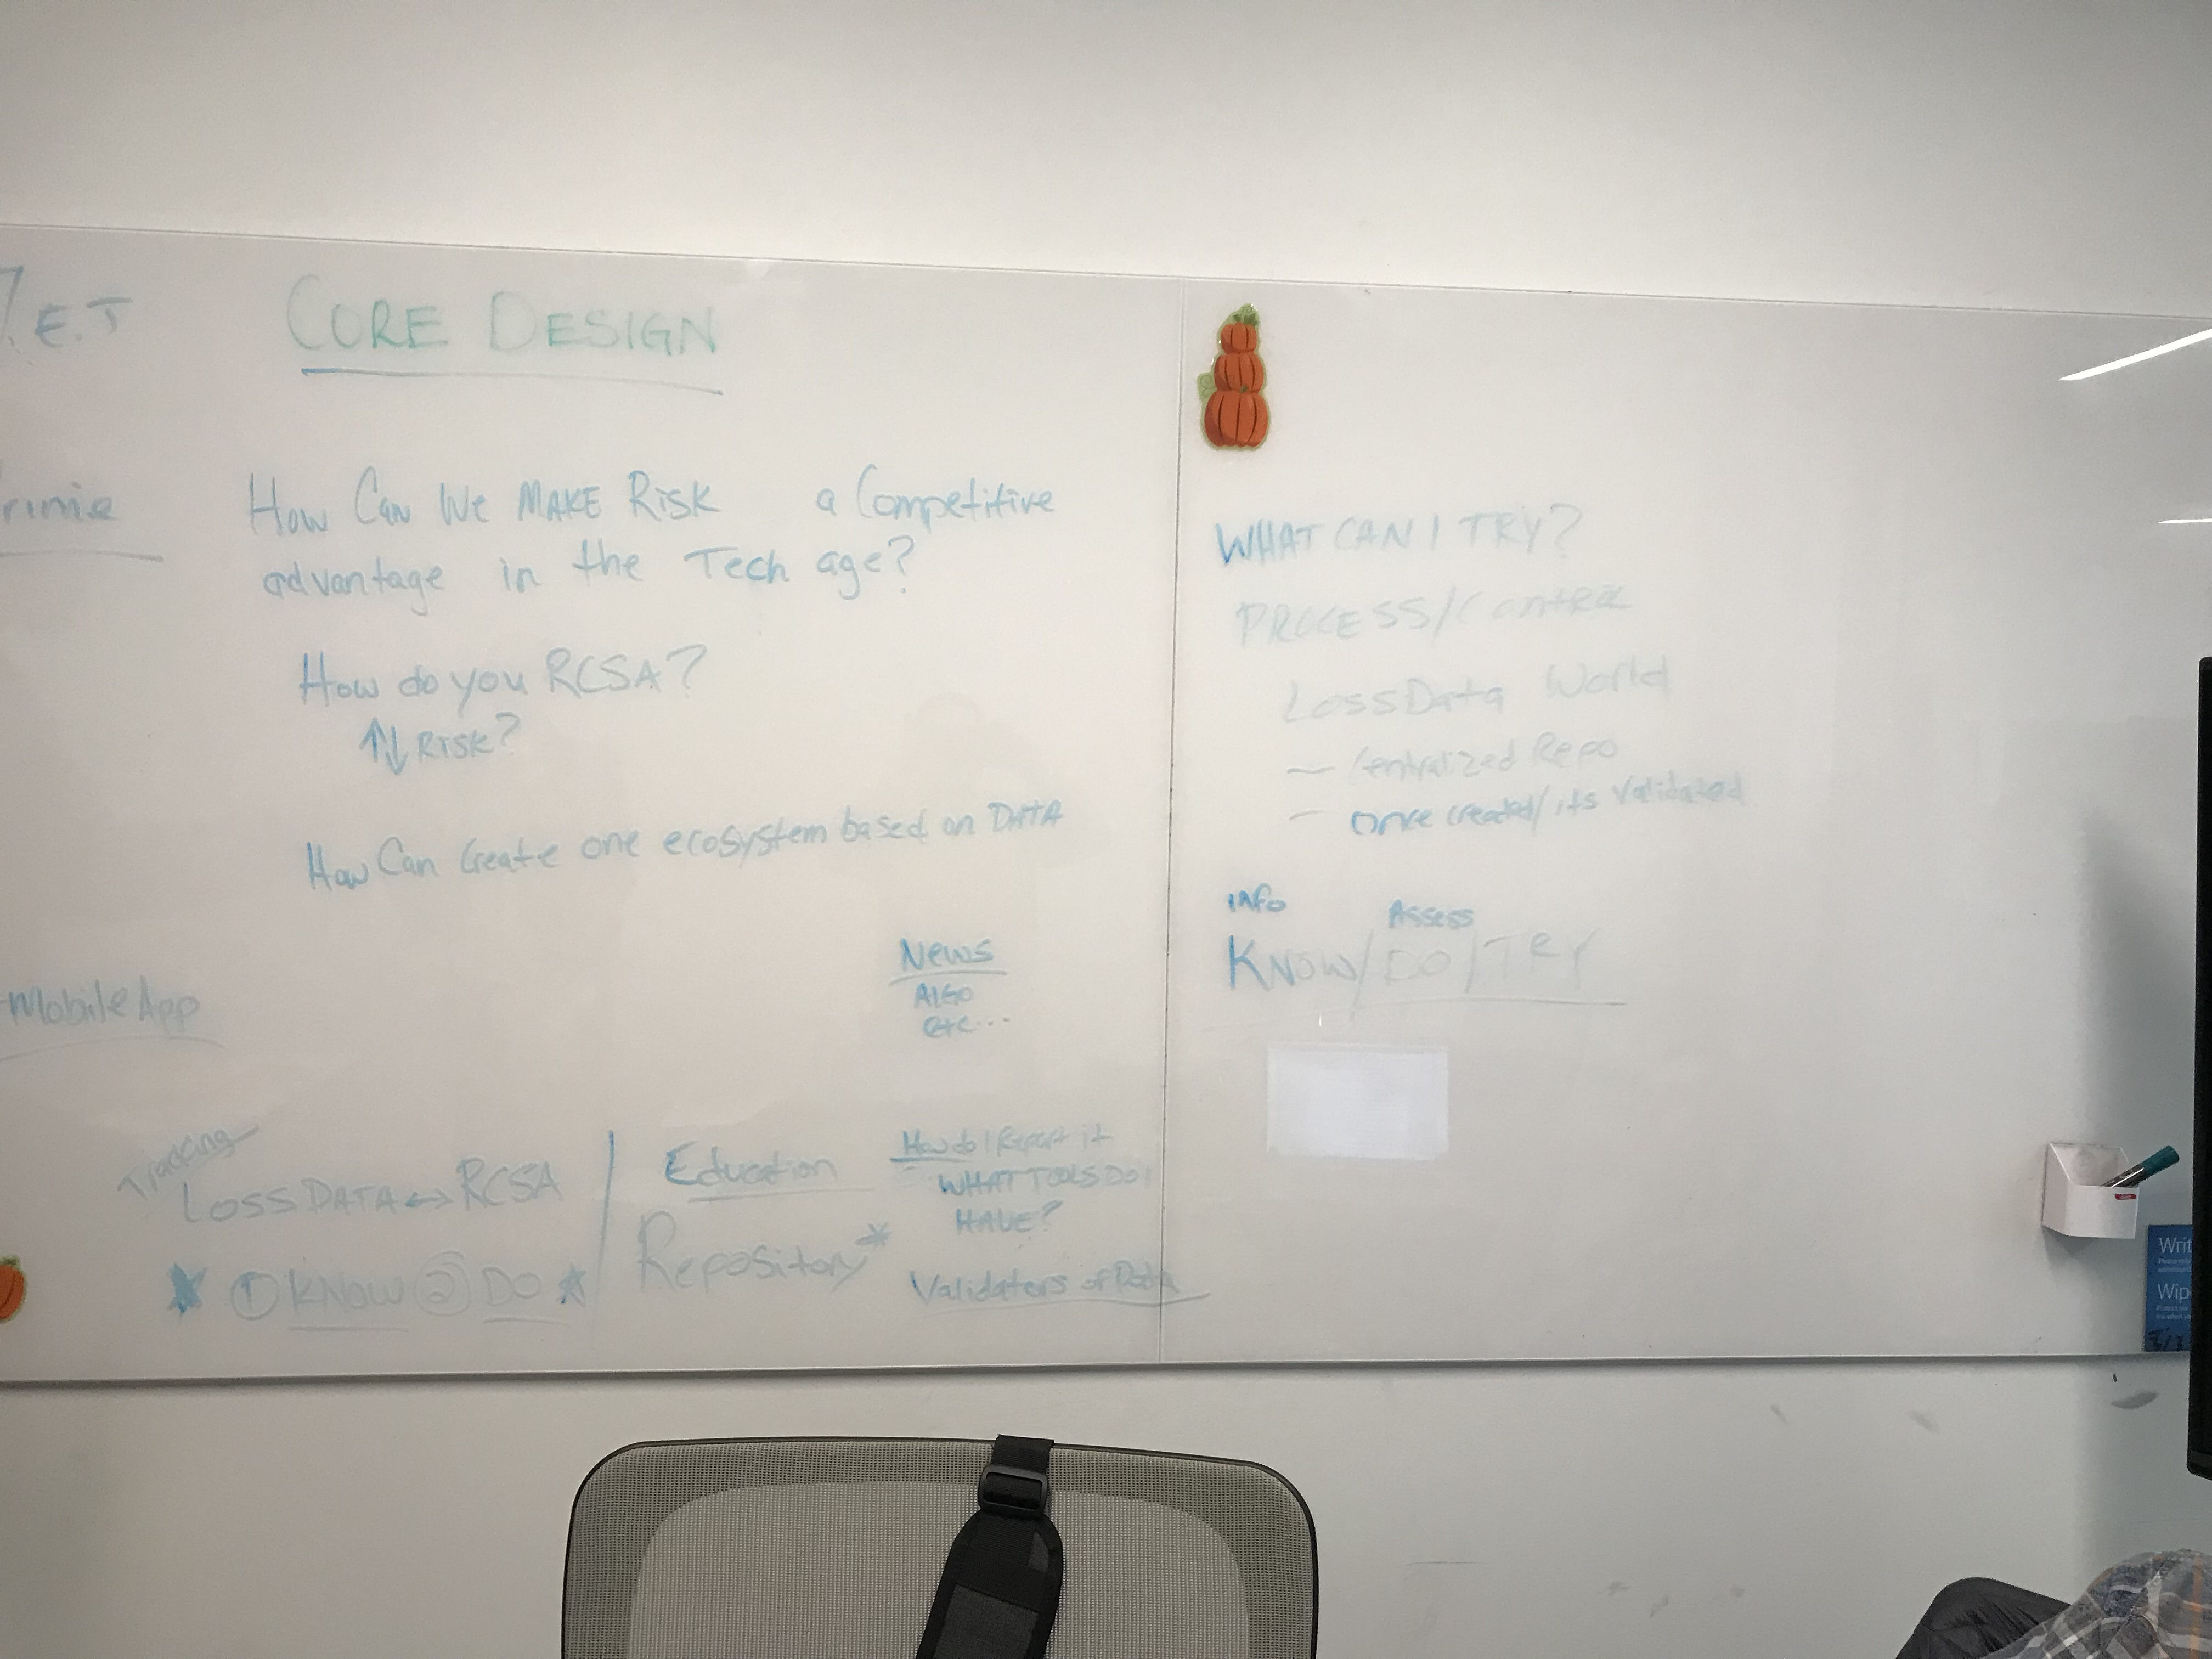 E.T
CORE DESIGN
How Can We MAKE RISK a Competitive
advantage in the Tech age?
How do you RCSA?
↑↓ RISK?
How Can Create one ecosystem based on DATA
News
ALGO
etc...
Mobile App
Tracking
LOSS DATA ↔ RCSA
① KNOW ② DO
Education
Repository*
How do I Report it
WHAT TOOLS DO I
HAVE?
Validaters of Data
WHAT CAN I TRY?
PROCESS/CONTROL
Loss Data World
— Centralized Repo
— Once created/its Validated
INFO
Assess
KNOW/DO/TRY
Writ
Wip